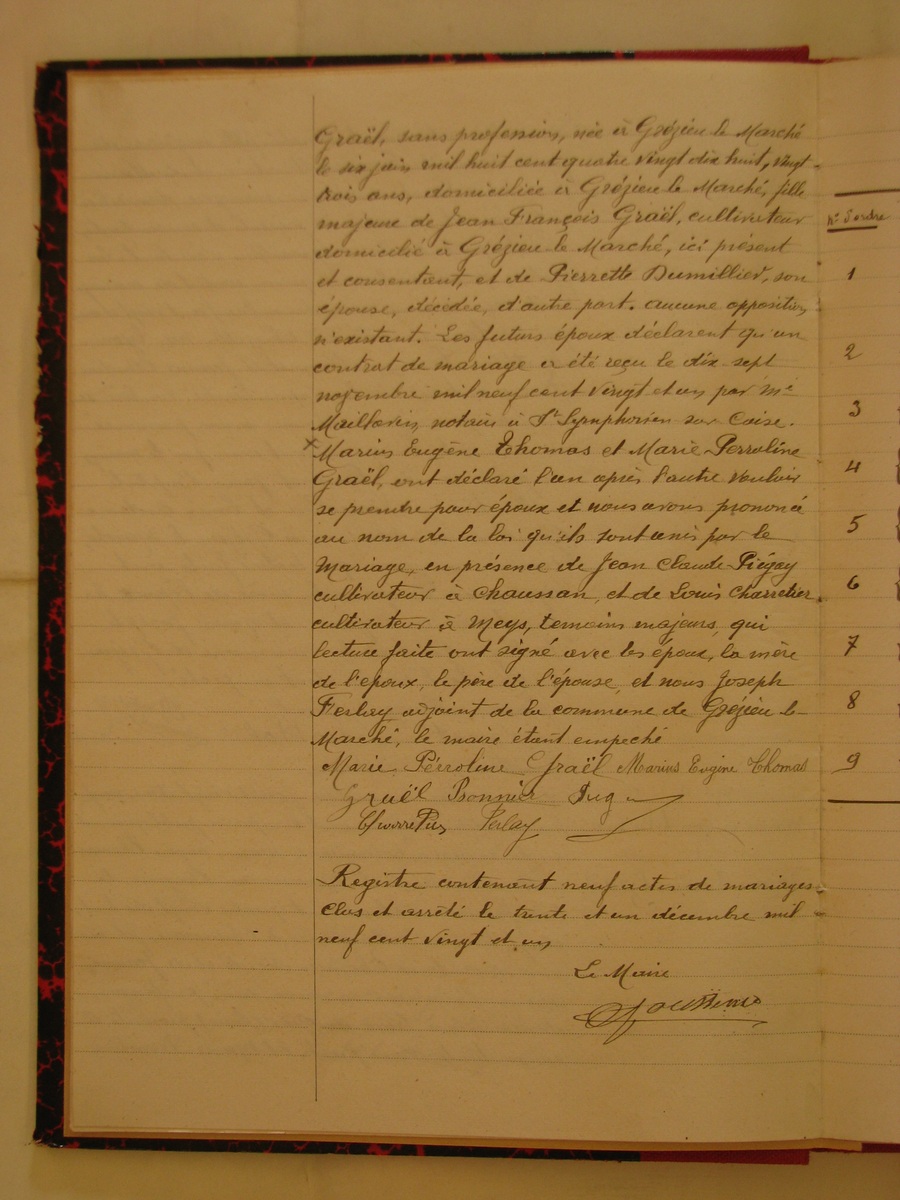 Graël, sans profession, née à Grézieu le Marché
le six juin mil huit cent quatre vingt dix huit, vingt
trois ans, domiciliée à Grézieu le Marché, fille
majeure de Jean François Graël, cultivateur
domicilié à Grézieu le Marché, ici présent
et consentant, et de Pierrette Dumillier, son
épouse, décédée, d'autre part. aucune opposition
n'existant. Les futurs époux déclarent qu'un
contrat de mariage a été reçu le dix sept
novembre mil neuf cent vingt et un par Me
notaire à St Symphorien sur Coise.
× Marius Eugène Thomas et Marie Perroline
Graël, ont déclaré l'un après l'autre vouloir
se prendre pour époux et nous avons prononcé
au nom de la loi qu'ils sont unis par le
Mariage, en présence de Jean Claude Piégay
cultivateur à Chaussan, et de Louis Charretier
cultivateur à Meys, temoins majeurs, qui
lecture faite ont signé avec les époux, la mère
de l'epoux, le père de l'épouse, et nous Joseph
Ferlay adjoint de la commune de Grézieu le
Marché, le maire étant empeché
Marie Pérroline Graël Marius Eugène Thomas
Graël Bonnier
Ferlay
Registre contenant neuf actes de mariages
Clos et arrêté le trente et un décembre mil
neuf cent vingt et un
Le Maire
N° d'ordre
1
2
3
4
5
6
7
8
9